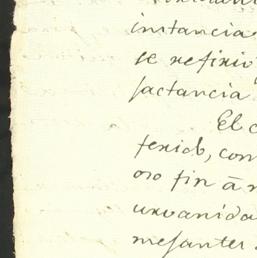 instancia
se refirio
jactancia
El c
ferido, con
oso fin à n
urvanida
mesantes.